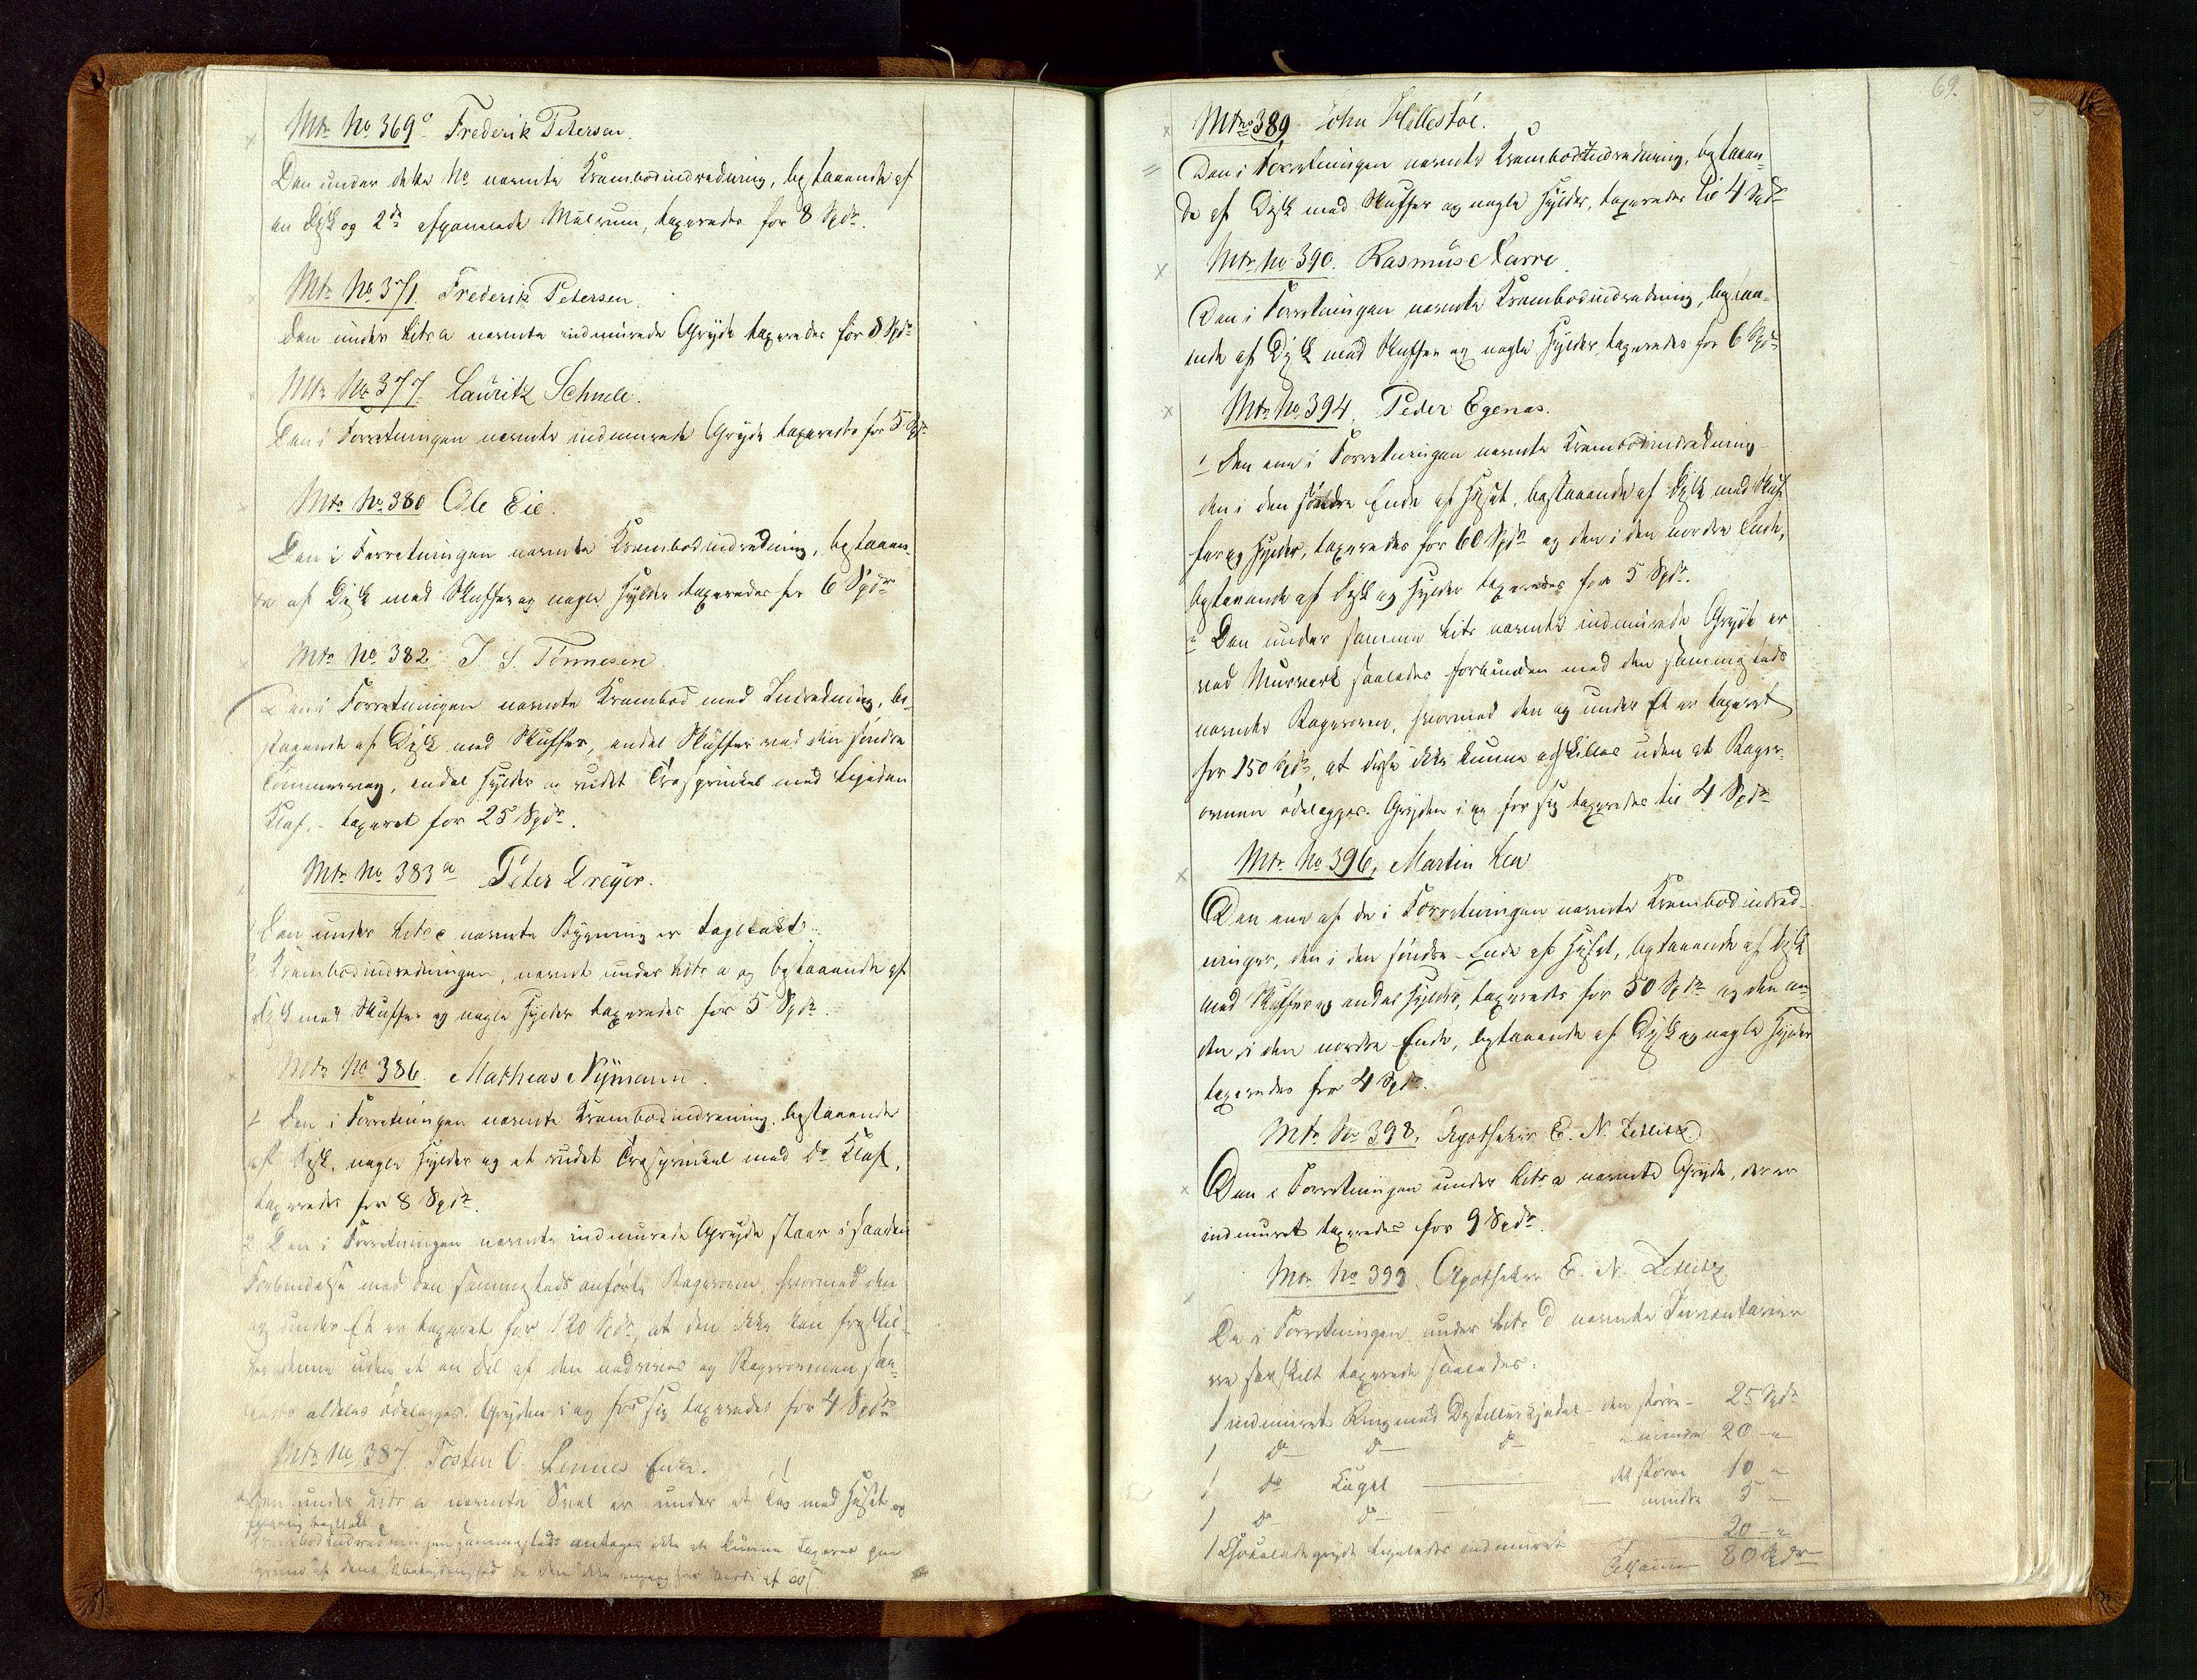 Mtr. No 369c Frederik Petersen.
Den under dette No nævnte Krambodindredning, bestaaende af
en Disk og 2de afpanelede Mulrum, taxeredes for 8 Spdr.
Mtr. No 371. Frederik Petersen.
Den under Litr a nævnte indmurede Gryde taxeredes for 8 Spdr
Mtr. No 377. Lauritz Schnell.
Den i Forretningen nævnte indmurede Gryde taxeredes for 5 Spdr
Mtr. No 380 Ole Eie.
Den i Forretningen nævnte Krambodindredning, bestaaen-
de af Disk med Skuffer og nogle Hylder taxeredes for 6 Spdr
Mtr No 382. T. S. Tønnesen.
Den i Forretningen nævnte Krambod med Indredning, be-
staaende af Disk med Skuffer, endel Skuffer ved den søndre
Tømmervæg, endel Hylder og rudet Træsprinkel med ligedan
Klaf, - taxeret for 25 Spdr.
Mtr. No 383a Peter Dreyer.
1 Den under Litr c nævnte Bygning er tagtækt.
2 Krambodindredningen, nævnt under Litr a og bestaaende af
Disk med Skuffer og nogle Hylder taxeredes for 5 Spdr.
Mtr No 386. Matheas Nÿmann.
1 Den i Forretningen nævnte Krambodindredning, bestaaende
af Disk, nogle Hylder og et rudet Træsprinkel med do Klaf,
taxeredes for 8 Spdr.
2. Den i Forretningen nævnte indmurede Gryde staar i saadan
Forbindelse med den sammesteds anførte Bagerovn, hvormed den
og under Et er taxeret for 120 Spdr, at den ikke kan fraskil-
les denne uden at en Del af den nedrives og Bagerovnen saa-
ledes aldeles ødelægges. Gryden i og for sig taxeredes for 4 Spdr
Mtr No 387. Tosten O. Lennes Enke.
Den under Litr a nævnte Sval er under et Tag med Huset og
Krambodindredningen sammesteds antages ikke at kunne taxeres paa
Grund af dens Ubetydenhed da den ikke engang har Værdi af
69.
Mtr No 389. John Hillestøe.
Den i Forretningen nævnte Krambodindredning, bestaaen-
de af Disk med Skuffer og nogle Hylder, taxeredes til 4 Spdr
Mtr. No 390. Rasmus Narre.
Den i Forretningen nævnte Krambodindredning, bestaa-
ende af Disk med Skuffer og nogle Hylder, taxeredes for 6 Spdr
Mtr. No 394. Peder Egenæs.
1 Den ene i Forretningen nævnte Krambodindredning -
den i den søndre Ende af Huset, bestaaende af Disk med Skuf-
fer og Hylder, taxeredes for 60 Spdr og den i den nordre Ende,
bestaaende af Disk og Hylder taxeredes for 5 Spdr.
2 Den under samme Litr nævnte indmurede Gryde er
ved Murværk saaledes forbunden med den sammesteds
nævnte Bagerovn, hvormed den og under Et er taxeret
for 150 Spdr, at disse ikke kunne adskilles uden at Bager-
ovnen ødelægges. Gryden i og for sig taxeredes til 4 Spdr
Mtr. No 396, Martin Lea
Den ene af de i Forretningen nævnte Krambodindred-
ninger, den i den søndre Ende af Huset, bestaaende af Disk
med Skuffer og endel Hylder, taxeredes for 50 Spdr og den an-
den i den nordre Ende, bestaaende af Disk og nogle Hylder
taxeredes for 4 Spdr.
Mtr. No 398, Apotheker E. N. Zetlitz.
Den i Forretningen under Litr a nævnte Gryde, der er
indmuret taxeredes for 9 Spdr.
Mtr. No 399. Apotheker E. N. Zetlitz
De i Forretningen under Litr d nævnte Inventarier
ere særskilt taxerede saaledes:
1 indmuret Ring med Destilleerkjedel - den større - 25 Spdr
1 do - do - do - " mindre 20 - "
1 do Kugel - det større 10 "
1 do - do - - mindre 5 -
1 Chokoladegryde ligeledes indmuret 20 - "
Tilsammen 80 Spdr